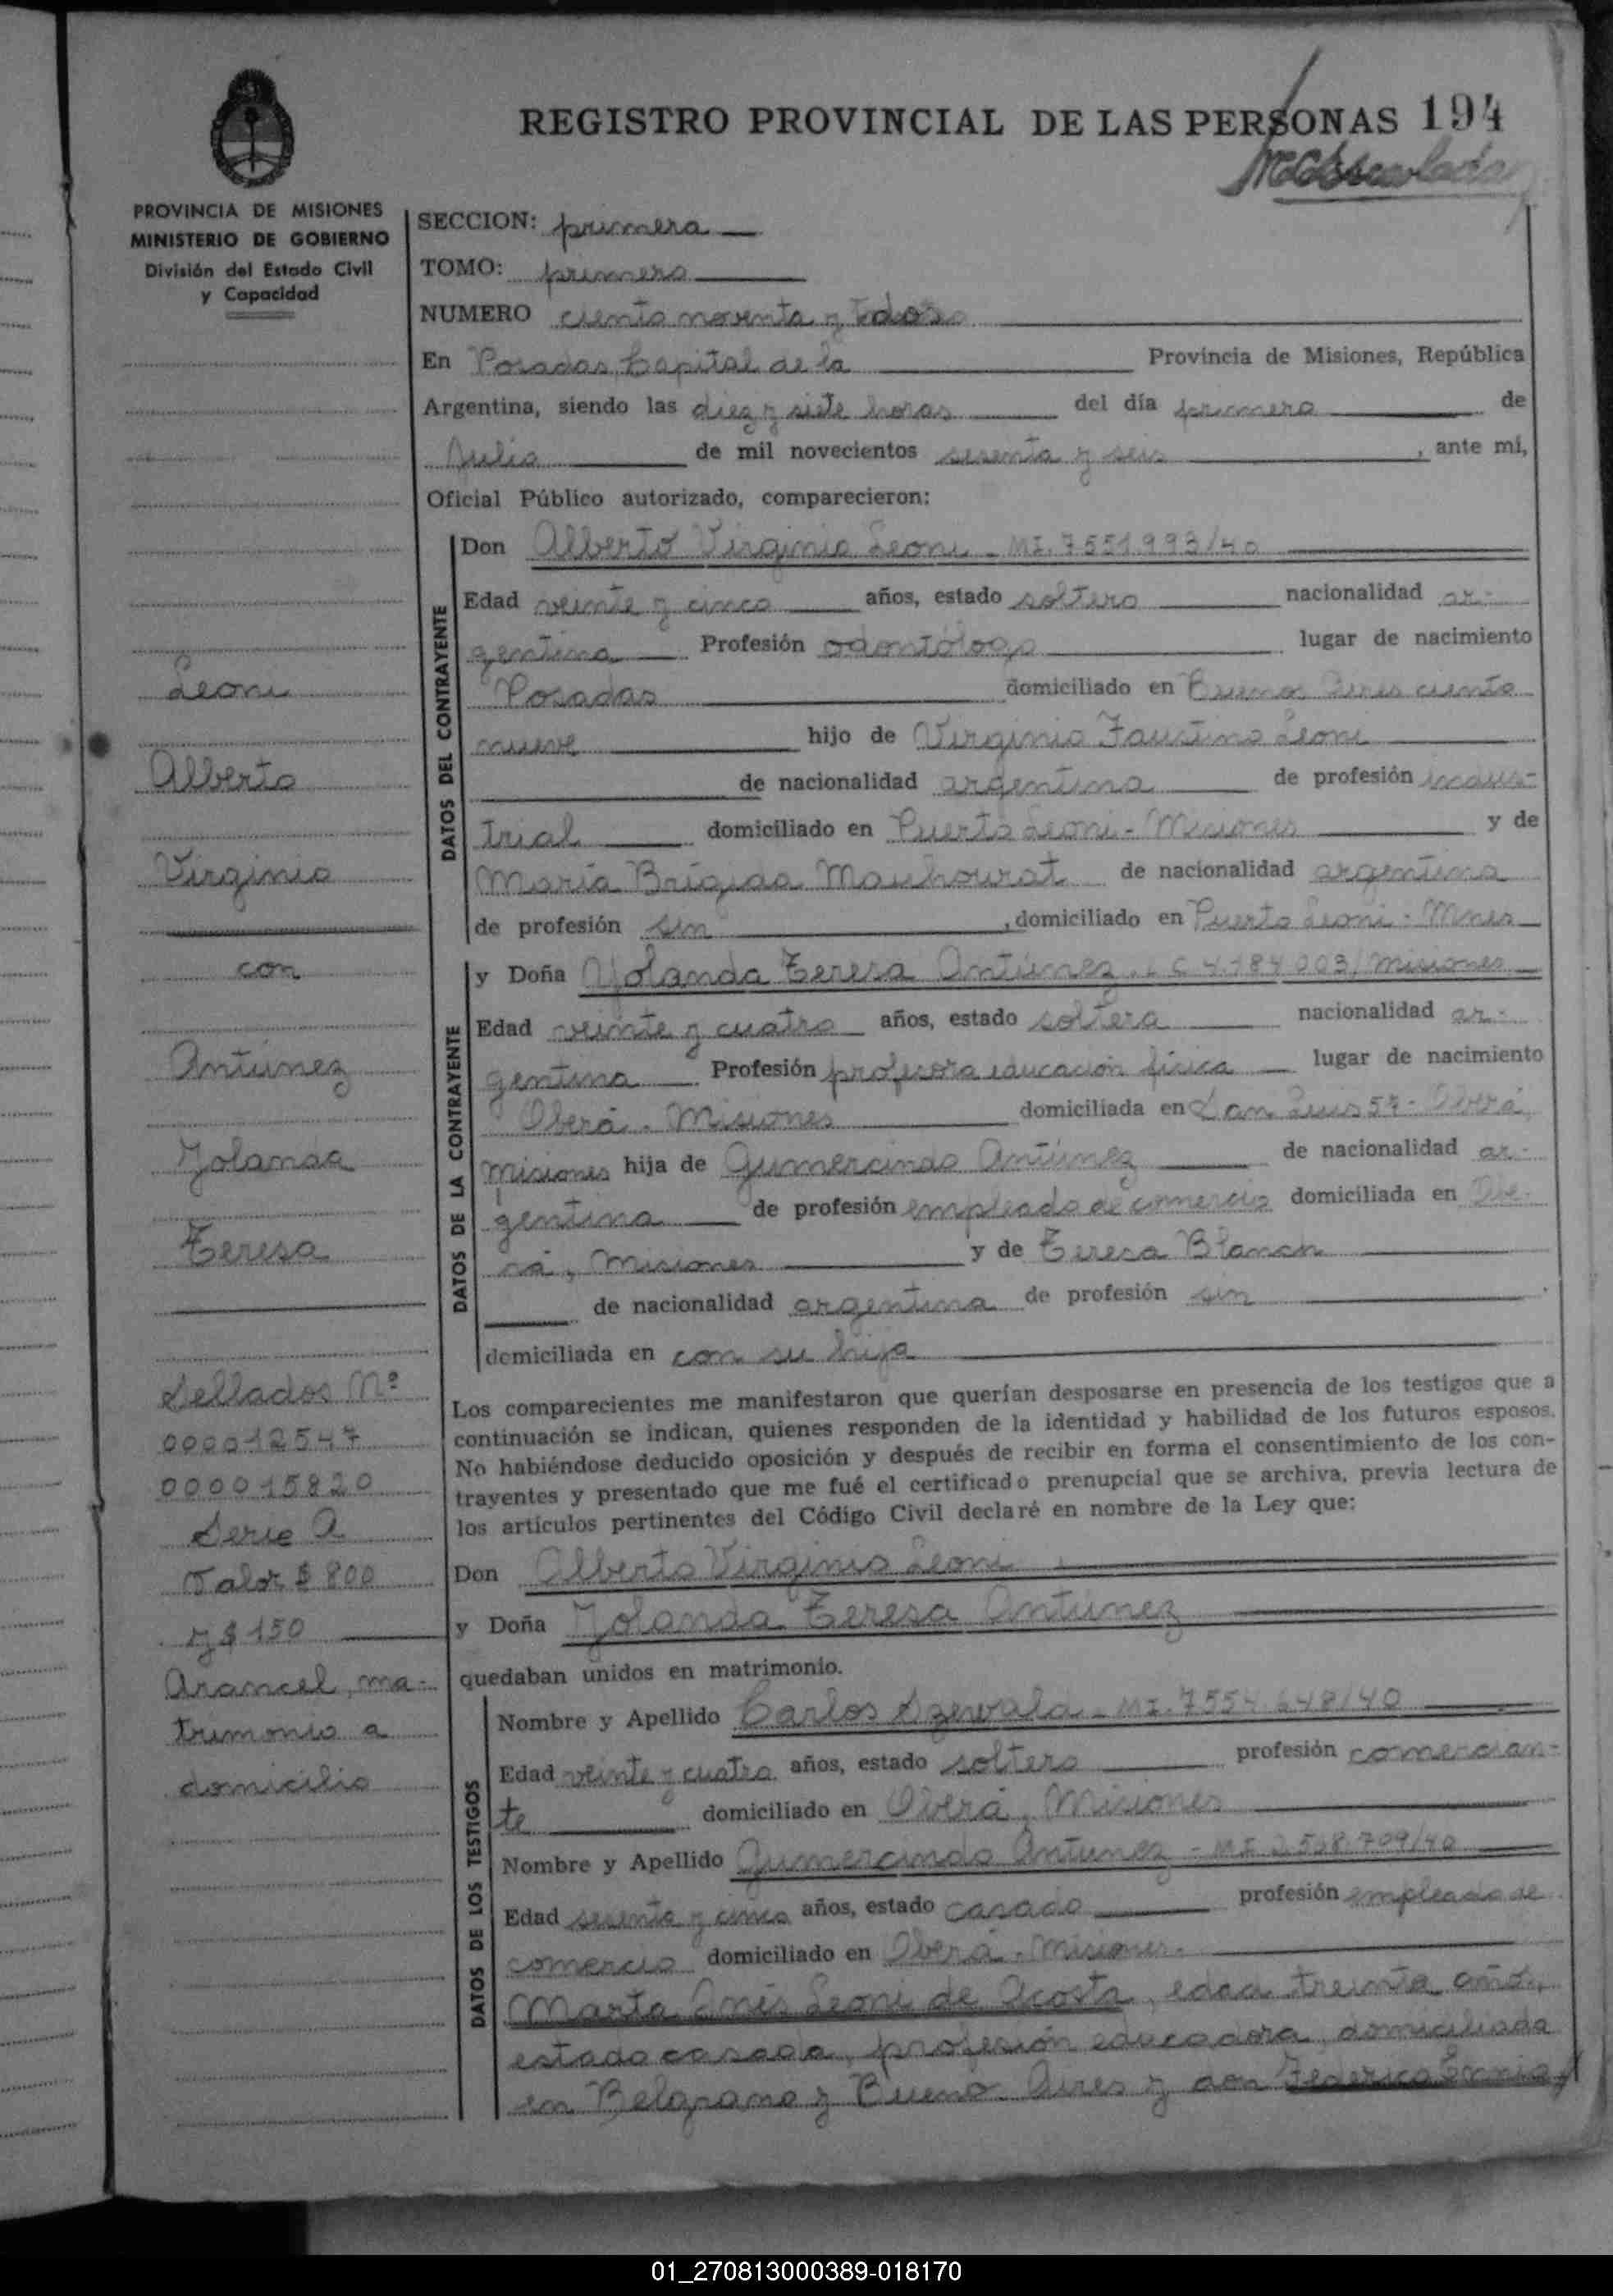 REGISTRO PROVINCIAL DE LAS PERSONAS 194
PROVINCIA DE MISIONES
MINISTERIO DE GOBIERNO
División del Estado Civil
y Capacidad
SECCION: primera
TOMO: primero
NUMERO ciento noventa y dos
En Posadas, Capital de la Provincia de Misiones, República
Argentina, siendo las diez y siete horas del día primero de
Julio de mil novecientos sesenta y seis, ante mí,
Oficial Público autorizado, comparecieron:
DATOS DEL CONTRAYENTE
Don Alberto Virginio Leoni - MI. 7551993/40
Edad veinte y cinco años, estado soltero nacionalidad ar-
gentina Profesión odontólogo lugar de nacimiento
Posadas domiciliado en Buenos Aires ciento
nueve hijo de Virginio Faustino Leoni
de nacionalidad argentina de profesión indus-
trial domiciliado en Puerto Leoni - Misiones y de
María Brígida Mouhourat de nacionalidad argentina
de profesión sin, domiciliado en Puerto Leoni - Mnes
DATOS DE LA CONTRAYENTE
y Doña Yolanda Teresa Antúnez. LC 4.184.003/Misiones
Edad veinte y cuatro años, estado soltera nacionalidad ar-
gentina Profesión profesora educación física lugar de nacimiento
Oberá - Misiones domiciliada en San Luis 57 - Oberá,
Misiones hija de Gumercindo Antúnez de nacionalidad ar-
gentina de profesión empleado de comercio domiciliada en Obe-
rá, Misiones y de Teresa Blanch
de nacionalidad argentina de profesión sin
domiciliada en con su hija
Leoni
Alberto
Virginio
con
Antúnez
Yolanda
Teresa
Sellados Nº
000012547
000015820
Serie A
Valor $ 800
y $ 150
Arancel, ma-
trimonio a
domicilio
Los comparecientes me manifestaron que querían desposarse en presencia de los testigos que a
continuación se indican, quienes responden de la identidad y habilidad de los futuros esposos.
No habiéndose deducido oposición y después de recibir en forma el consentimiento de los con-
trayentes y presentado que me fué el certificado prenupcial que se archiva, previa lectura de
los artículos pertinentes del Código Civil declaré en nombre de la Ley que:
Don Alberto Virginio Leoni
y Doña Yolanda Teresa Antúnez
quedaban unidos en matrimonio.
DATOS DE LOS TESTIGOS
Nombre y Apellido Carlos Szewald - MI. 7554.648/40
Edad veinte y cuatro años, estado soltero profesión comercian-
te domiciliado en Oberá, Misiones
Nombre y Apellido Gumercindo Antúnez - MI 2.508.709/40
Edad sesenta y cinco años, estado casado profesión empleado de
comercio domiciliado en Oberá - Misiones.
Marta Inés Leoni de Acosta, edad treinta años,
estado casada, profesión educadora, domiciliada
en Belgrano y Buenos Aires y don Federico
01_270813000389-018170